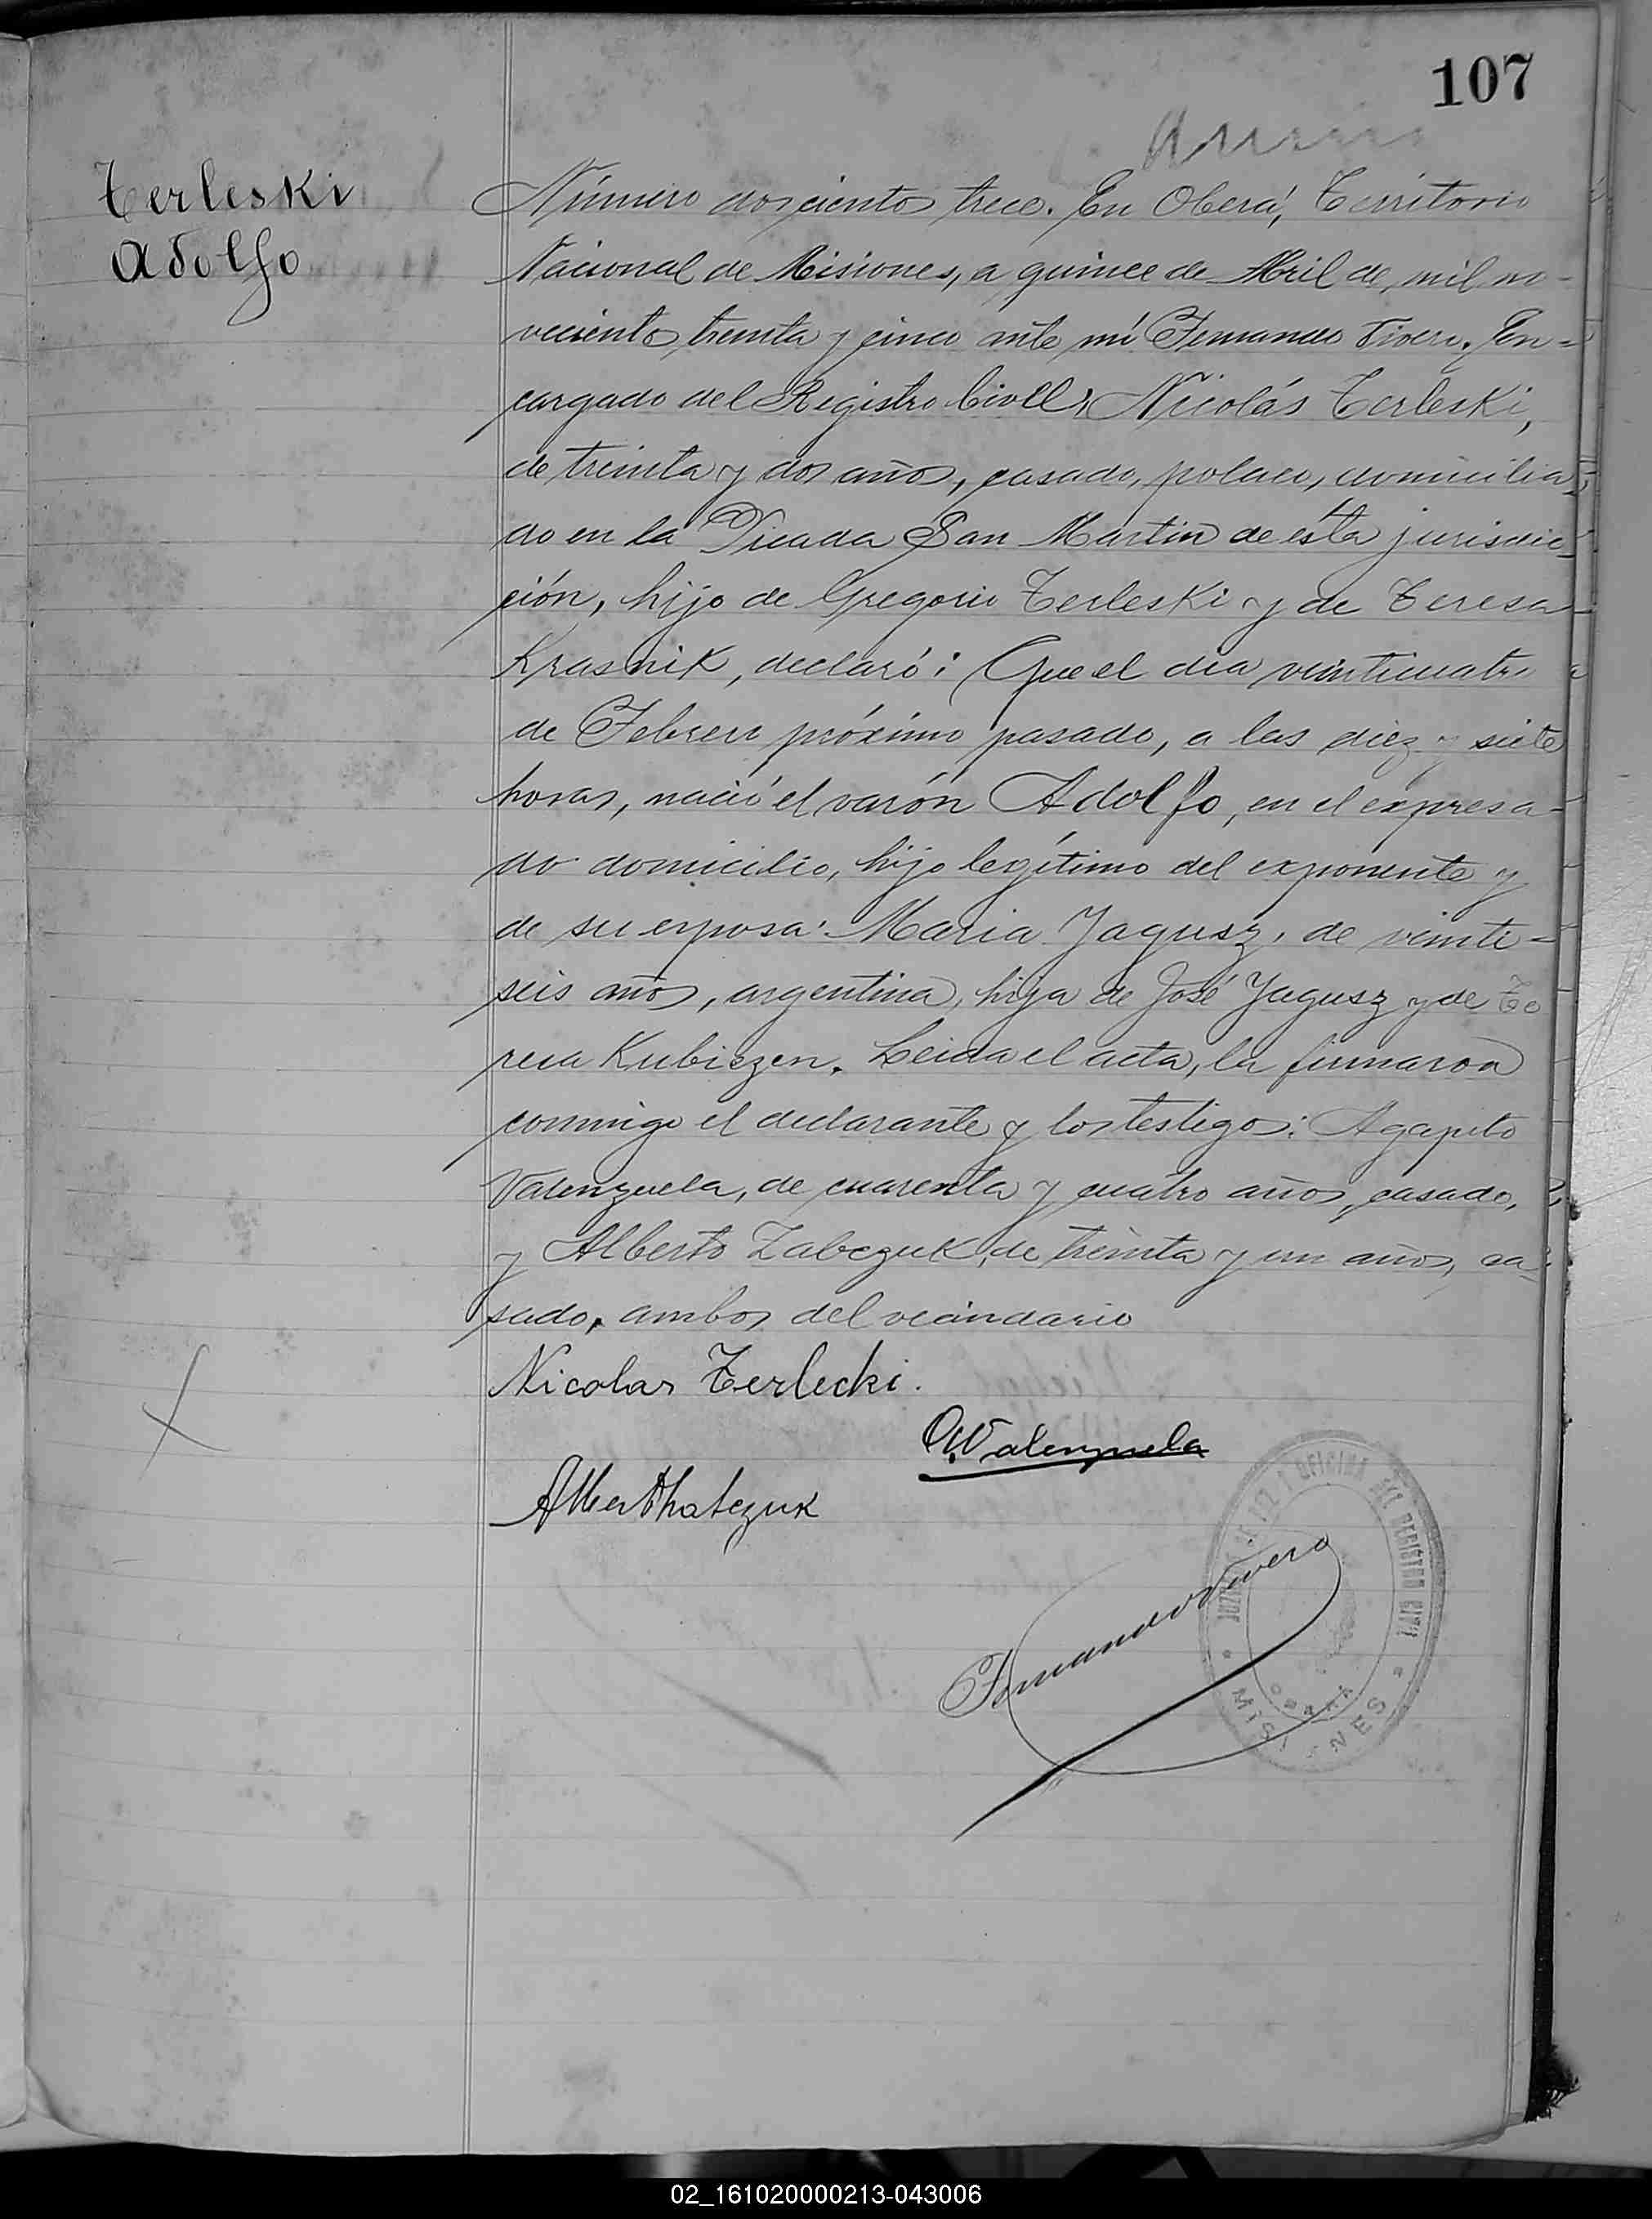 107
Terleski
Adolfo
Número doscientos trece. En Oberá, Territorio
Nacional de Misiones, a quince de Abril de mil no-
vecientos treinta y cinco ante mí Fernando Vivero, En-
cargado del Registro Civil, Nicolás Terleski,
de treinta y dos años, casado, polaco, domicilia-
do en la Picada San Martin de esta jurisdic-
ción, hijo de Gregorio Terleski y de Teresa
Krasnik, declaró: Que el día veinticuatro
de Febrero próximo pasado, a las diez y siete
horas, nació el varón Adolfo, en el expresa-
do domicilio, hijo legítimo del exponente y
de su esposa: Maria Jagusz, de veinti-
seis años, argentina, hija de José Jagusz y de Te
resa Kubiszen. Leida el acta, la firmaron
conmigo el declarante y los testigos: Agapito
Valenzuela, de cuarenta y cuatro años, casado,
y Alberto Zabczuk, de treinta y un años, ca-
sado, ambos del vecindario
Nicolas Terlecki.
Valenzuela
Fernando Vivero
OFICINA DEL REGISTRO CIVIL
OBERA
MISIONES
02_161020000213-043006